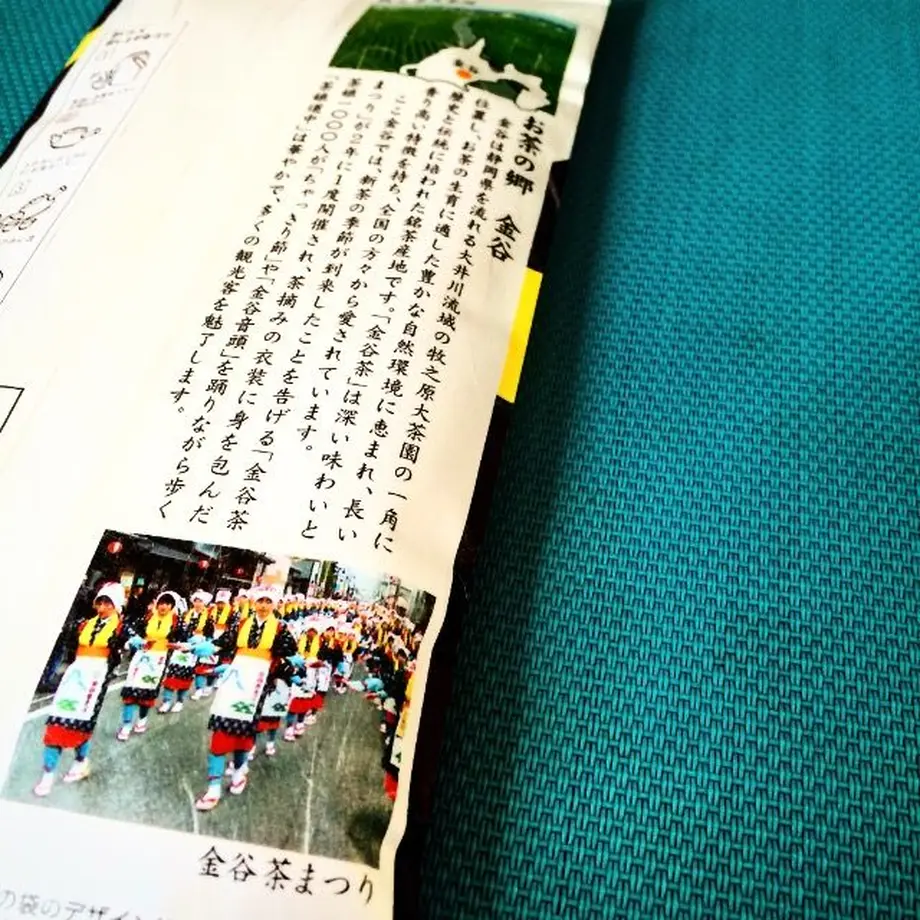 お茶の郷 金谷
金谷は静岡県を流れる大井川流域の牧之原大茶園の一角に
位置し、お茶の生育に適した豊かな自然環境に恵まれ、長い
歴史と伝統に培われた銘茶産地です。「金谷茶」は深い味わいと
香り高い特徴を持ち、全国の方々から愛されています。
ここ金谷では、新茶の季節が到来したことを告げる「金谷茶
まつり」が2年に1度開催され、茶摘みの衣装に身を包んだ
茶娘一〇〇〇人が「ちゃっきり節」や「金谷音頭」を踊りながら歩く
「茶娘道中」は華やかで、多くの観光客を魅了します。
金谷茶まつり
の袋のデザイン